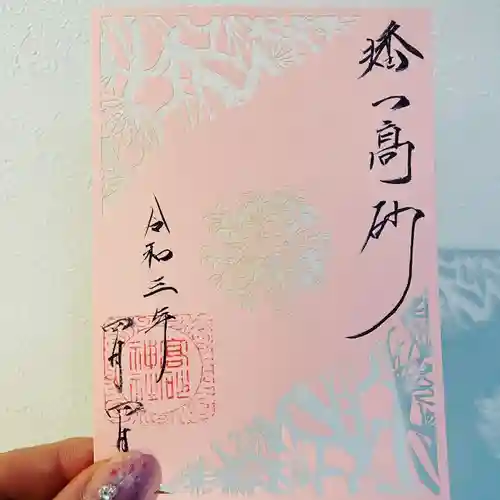 播州髙砂
令和三年
四月四日
高砂
神社